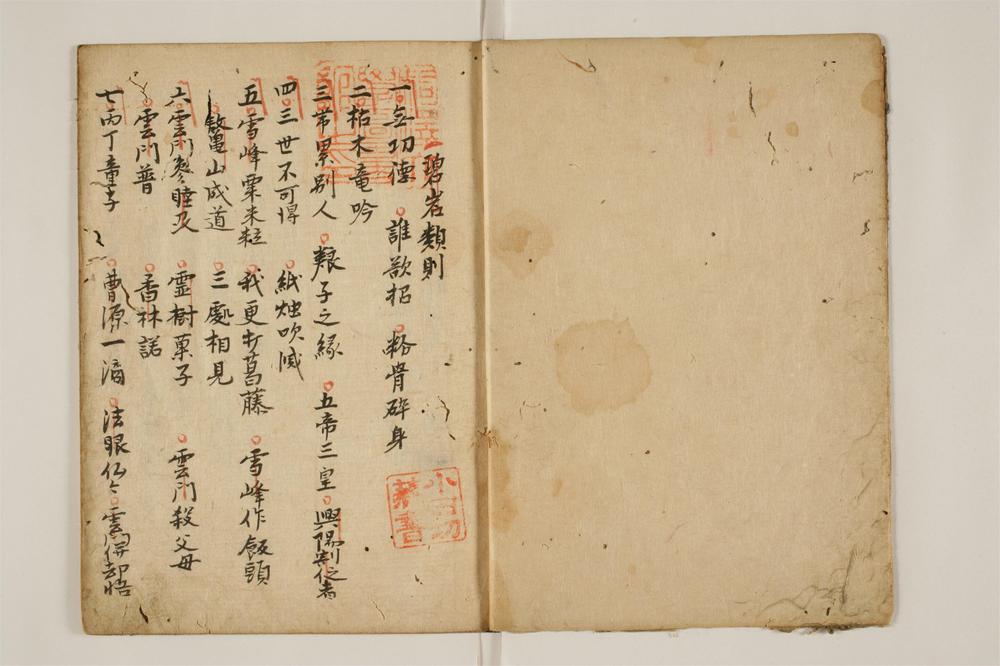 碧岩類則
一 無功德 誰欲招 粉骨碎身
二 枯木竜吟
三 帯累別人 猴子之縁 五帝三皇 興陽剖侍者
四 三世不可得 紙燭吹滅
五 雪峰粟米粒 我更打葛藤 雪峰作飯頭
鼇山成道 三處相見
六 雲門 睦州 霊樹菓子 雲門殺父母
雲門普 香林諾
七 丙丁童子 曹源一滴 法眼 雲門 却悟